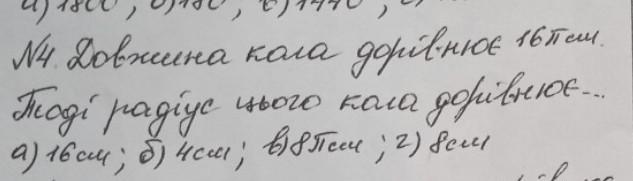 а) 1800; б) 180; в) 1440;
№4. Довжина кола дорівнює 16π см.
Тоді радіус цього кола дорівнює...
а) 16 см; б) 4 см; в) 8π см; г) 8 см